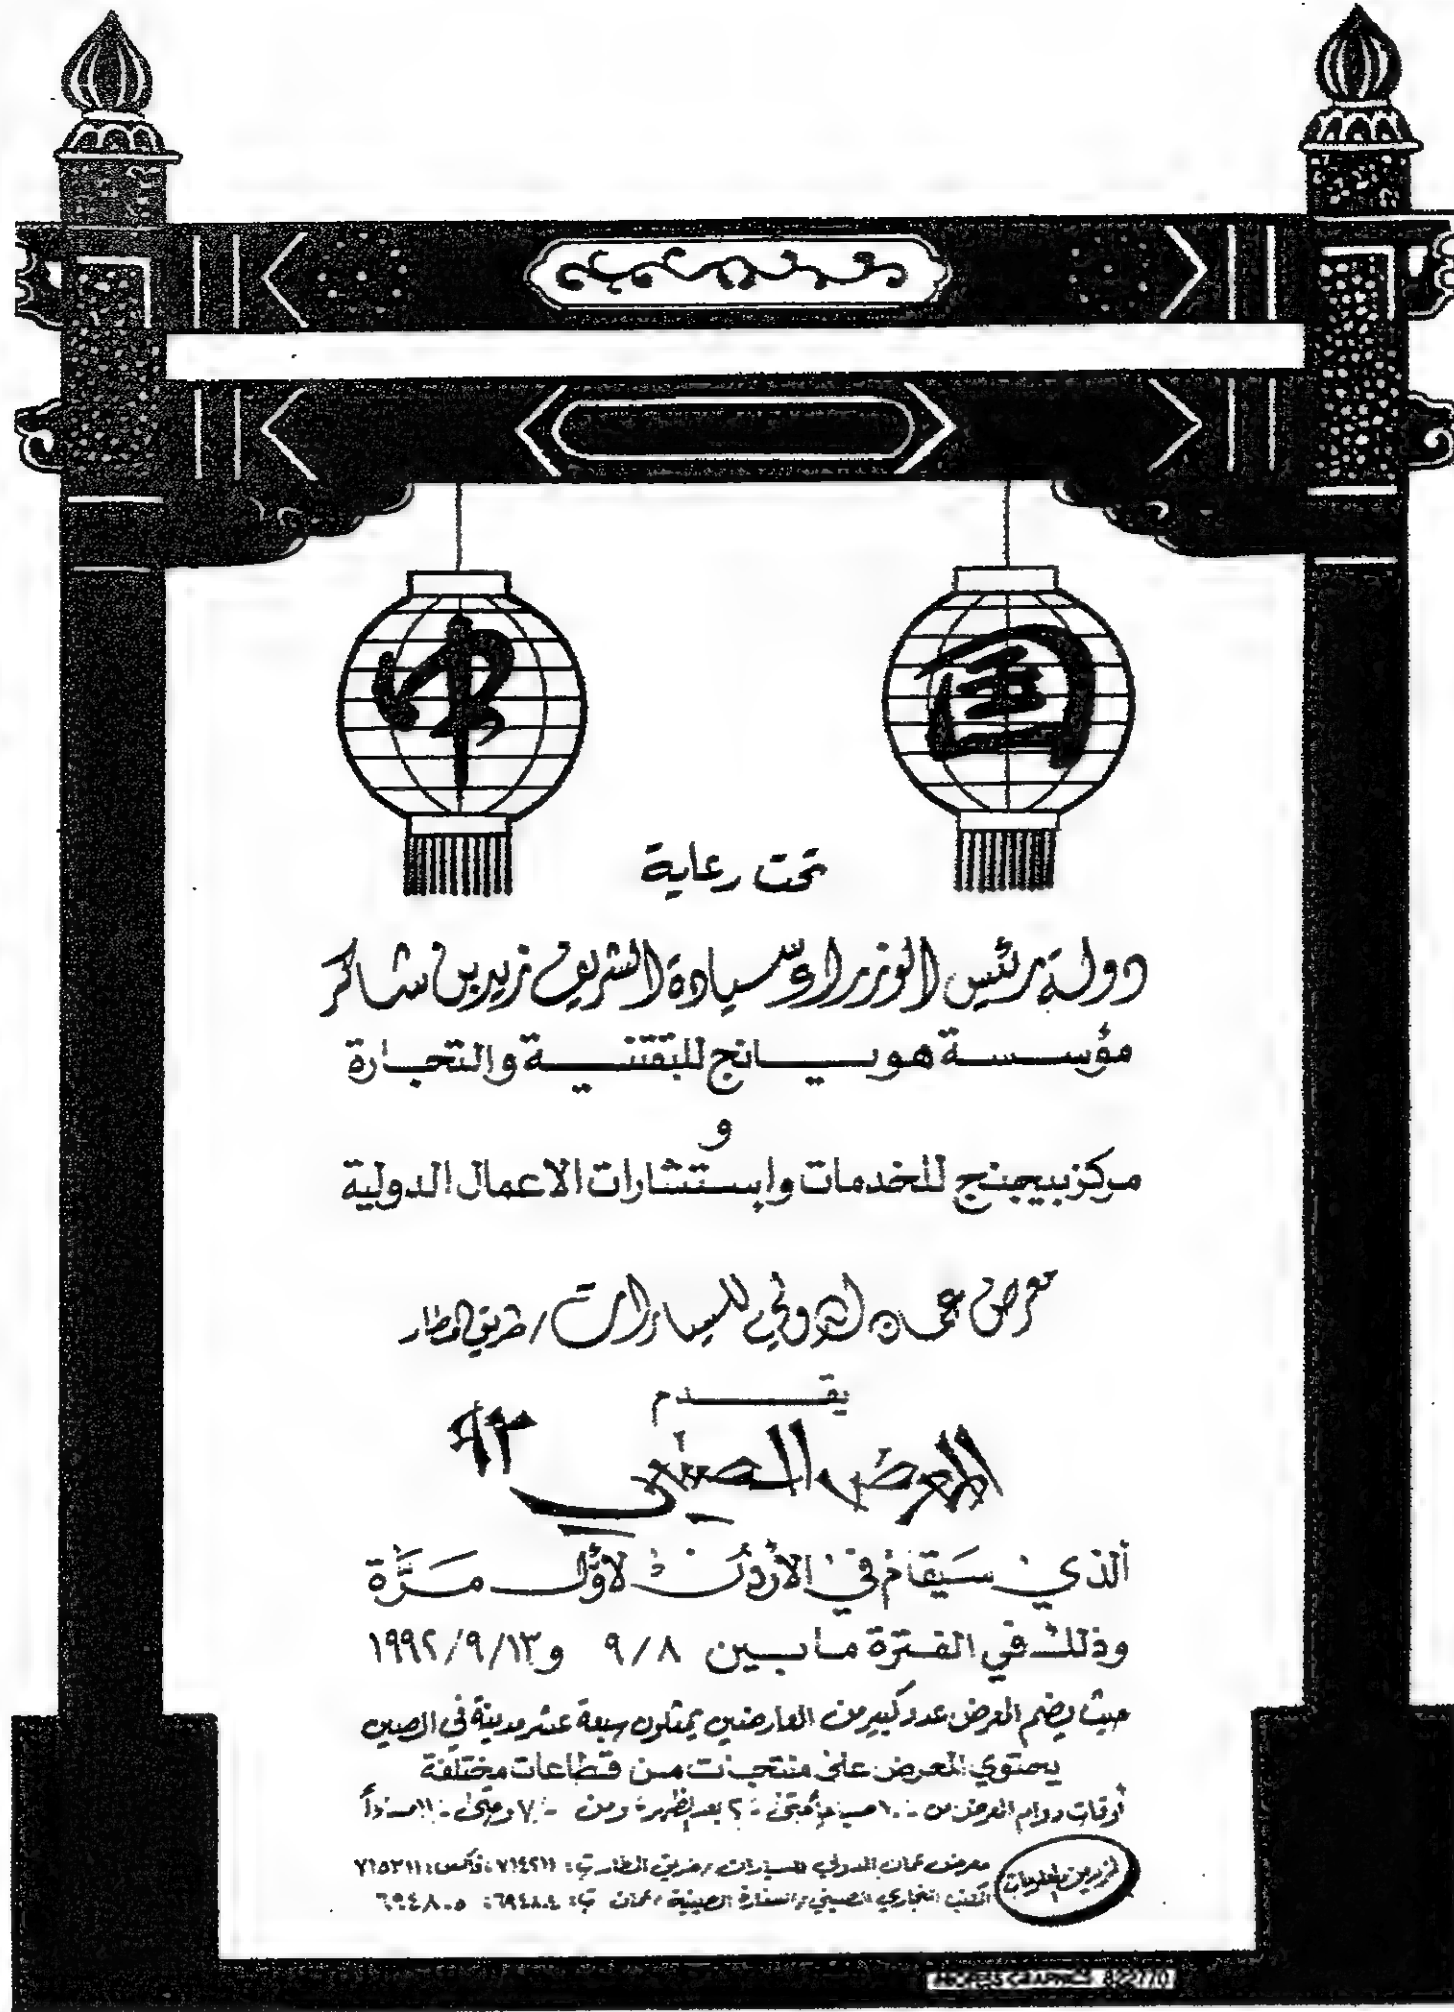 中 国
تحت رعاية
دولة رئيس الوزراء سيادة الشريف زيد بن شاكر
مؤسسة هوبيانج للتقنية والتجارة
و
مركز بيجنج للخدمات وإستشارات الاعمال الدولية
معرض عمان الدولي للسيارات / طريق المطار
يقدم
المعرض الصيني ٩٣
الذي سَيقام في الأردن لأوَّل مَرَّة
وذلك في الفترة مابين ٩/٨ و١٩٩٢/٩/١٣
حيث يضم المعرض عدد كبير من العارضين يمثلون سبعة عشر مدينة في الصين
يحتوي المعرض على منتجات من قطاعات مختلفة
أوقات دوام المعرض من ١٠ صباحاً حتى ٢ بعد الظهر ومن وحتى مساءً
لمزيد من المعلومات
معرض عمان الدولي للسيارات / طريق المطار ت: ٧١٤٢١١ فاكس: ٧١٥٣١١
المكتب التجاري الصيني / السفارة الصينية / عمان ت: ٦٩٤٨٠٤، ٦٩٤٨٠٥
GRAPHICS 822770